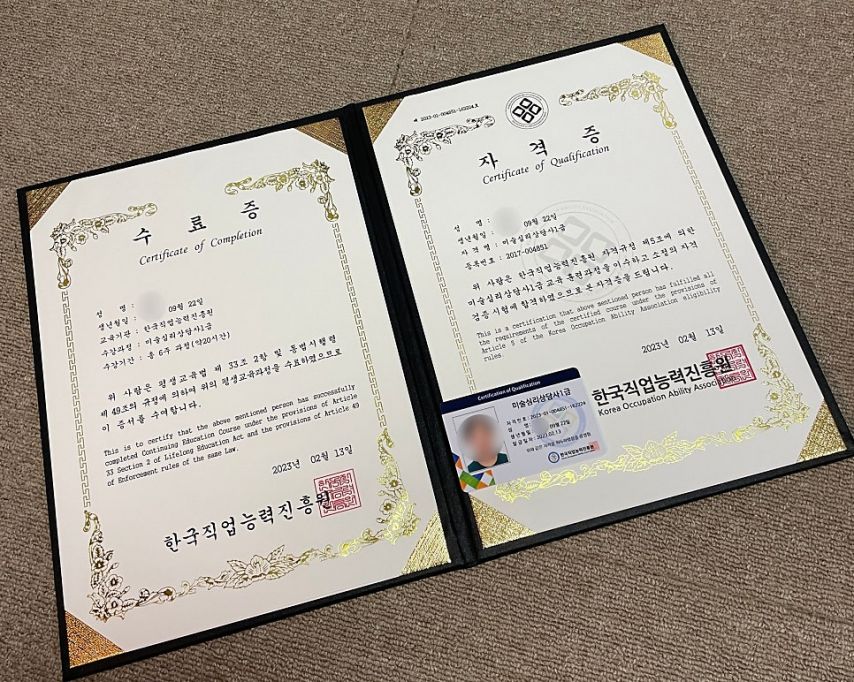 수 료 증
Certificate of Completion
성 명 :
생년월일 : 09월 22일
교육기관 : 한국직업능력진흥원
수강과정 : 미술심리상담사1급
수강기간 : 총 6주 과정(약20시간)
위 사람은 평생교육법 제 33조 2항 및 동법시행령
제 49조의 규정에 의하여 위의 평생교육과정을 수료하였으므로
이 증서를 수여합니다.
This is to certify that the above mentioned person has successfully
completed Continuing Education Course under the provisions of Article
33 Section 2 of Lifelong Education Act and the provisions of Article 49
of Enforcement rules of the same Law.
2023년 02월 13일
한국직업능력진흥원
2023-01-004851-162024호
자 격 증
Certificate of Qualification
성 명 :
생년월일 : 09월 22일
자 격 명 : 미술심리상담사1급
등록번호 : 2017-004851
위 사람은 한국직업능력진흥원 자격규정 제5조에 의한
미술심리상담사1급 교육 훈련과정을 이수하고 소정의 자격
검증시험에 합격하였으므로 본 자격증을 드립니다.
This is a certification that above mentioned person has fulfilled all
the requirements of the certified course under the provisions of
Article 5 of the Korea Occupation Ability Association eligibility
rules.
2023년 02월 13일
한국직업능력진흥원
Korea Occupation Ability Association
Certification of Qualification
미술심리상담사1급
자격번호 : 2023-01-004851-162024
명 :
생년월일 : 09월 22일
발급일자 : 2023.02.13
한국직업능력진흥원